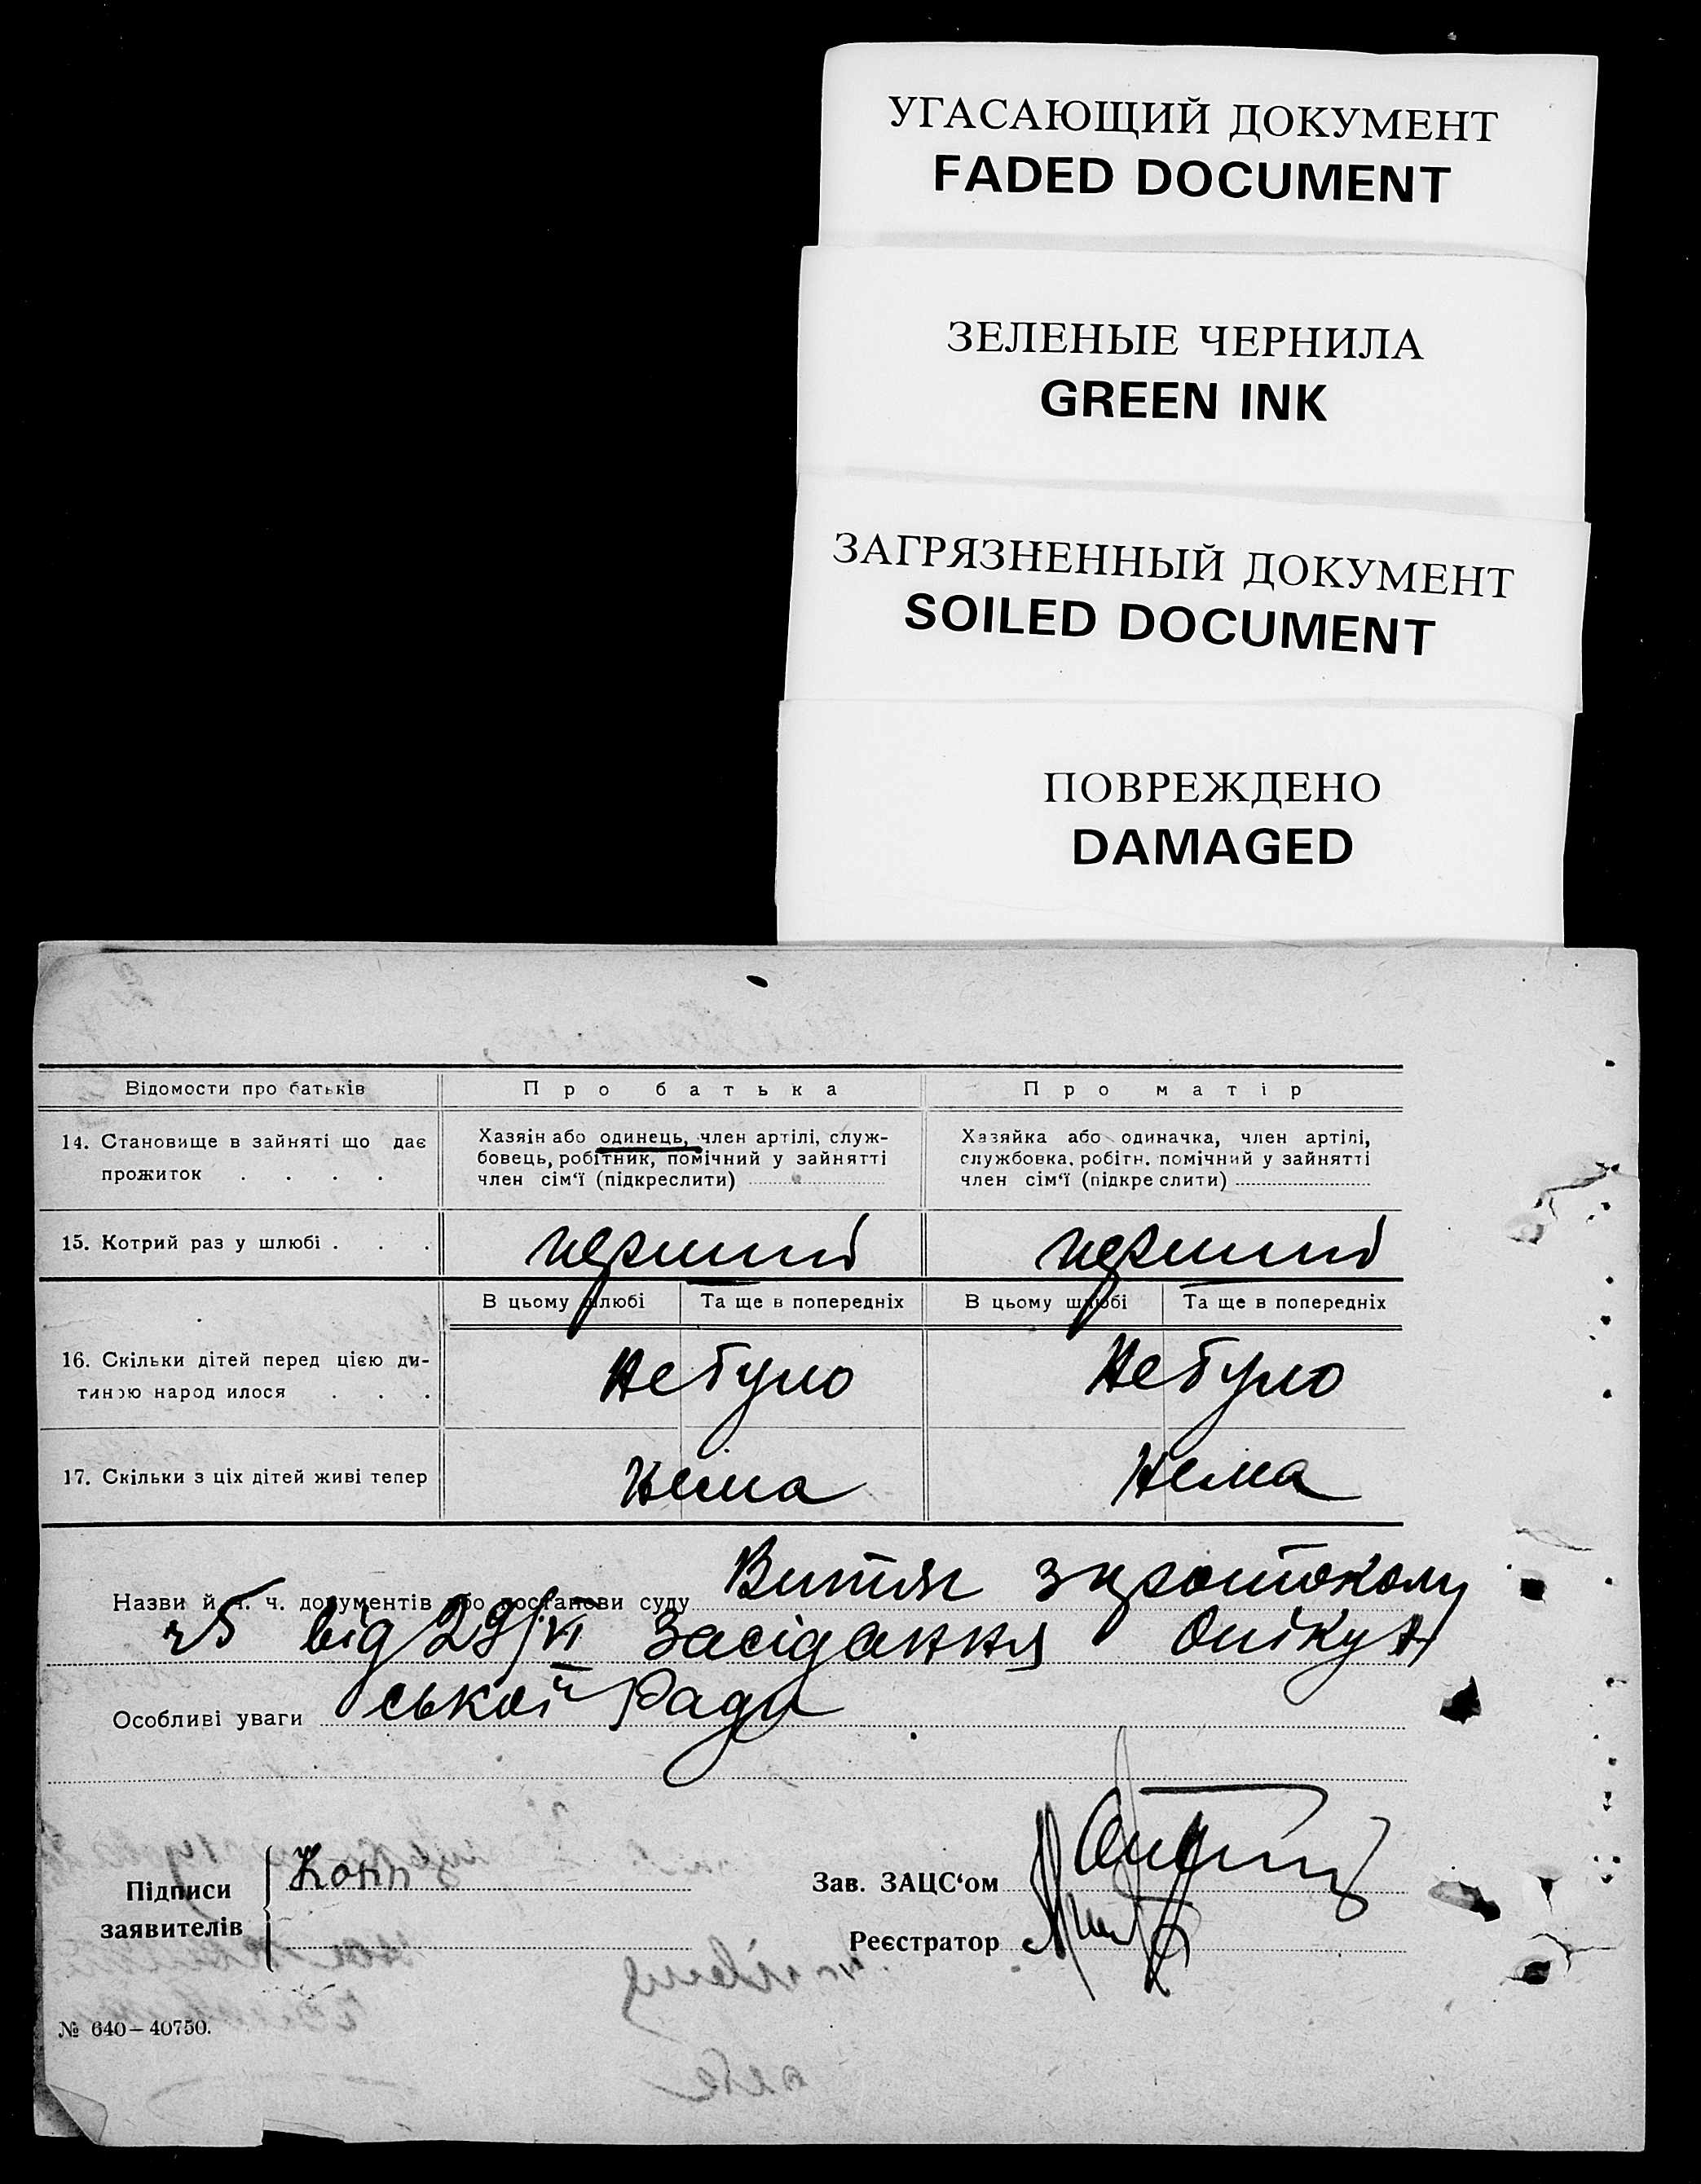 УГАСАЮЩИЙ ДОКУМЕНТ
FADED DOCUMENT
ЗЕЛЕНЫЕ ЧЕРНИЛА
GREEN INK
ЗАГРЯЗНЕННЫЙ ДОКУМЕНТ
SOILED DOCUMENT
ПОВРЕЖДЕНО
DAMAGED
Відомости про батьків
Про батька
Про матір
14. Становище в зайняті що дає
прожиток . . . .
Хазяін або одинець, член артілі, служ-
бовець, робітник, помічний у зайнятті
член сім‘ї (підкреслити)
Хазяйка або одиначка, член артілі,
службовка, робітн. помічний у зайнятті
член сім‘ї (підкреслити)
15. Котрий раз у шлюбі . . .
перший
перший
В цьому шлюбі
Та ще в попередніх
В цьому шлюбі
Та ще в попередніх
16. Скільки дітей перед цією ди-
тиною народилося . . .
Не було
Не було
17. Скільки з ціх дітей живі тепер
Нема
Нема
Назви й ч. ч. документів або постанови суду Витяг з протоколу
ч 5 від 29/VI засідання Опікун
Особливі уваги ської Ради
Підписи
заявителів
Зав. ЗАЦС‘ом
Реєстратор
№ 640–40750.